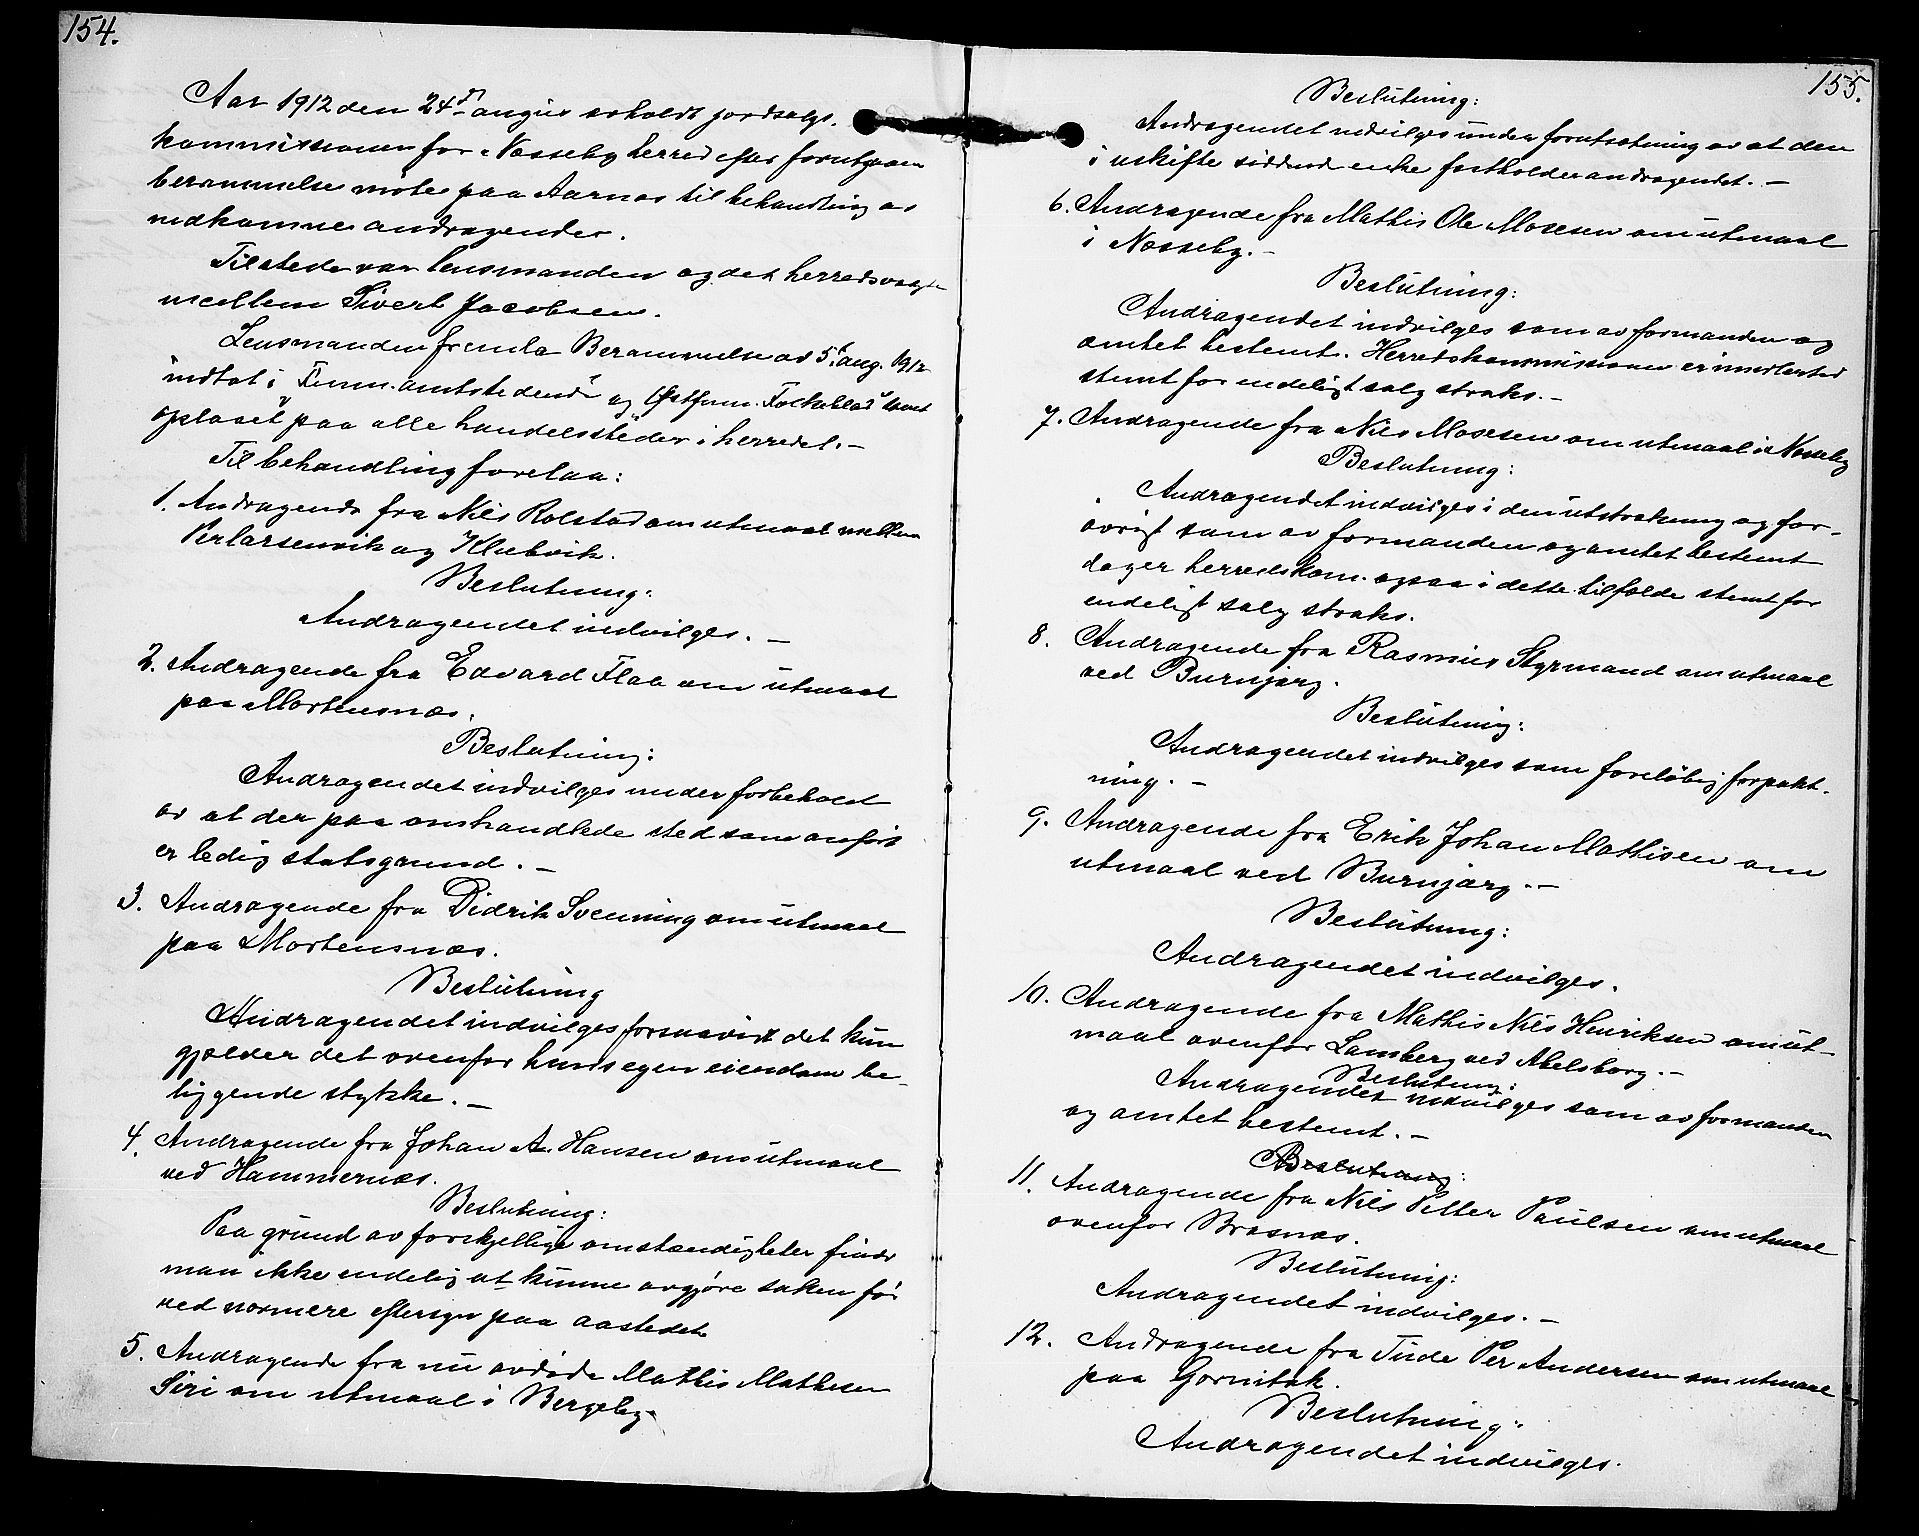 154.
Aar 1912 den 24de august avholdt jordsalgs-
kommissionen for Næsseby herred efter forutgaaen
berammelse møte paa Aarnæs til behandling av
indkomne andragender.
Tilstede var lensmanden og det herredsvalgte
medlem Sivert Jacobsen.
Lensmanden fremla Berammelse av 5. aug. 1912
indtat i "Finm. amtstidende" og "Østfinm. Folkeblad" samt
oplaset paa alle handelssteder i herredet.-
Til behandling forelaa:
1. Andragende fra Nils Rolstad om utmaal mellem
Perlarsenvik og Klubvik.
Beslutning:
Andragendet indvilges. -
2. Andragende fra Edvard Flaa om utmaal
paa Mortensnæs.
Beslutning:
Andragendet indvilges under forbehold
av at der paa omhandlede sted som anført
er ledig statsgrund. -
3. Andragende fra Didrik Svenning om utmaal
paa Mortensnæs.
Beslutning
Andragendet indvilges forsaavidt det kun
gjælder det ovenfor hans egen eiendom be-
liggende stykke. -
4. Andragende fra Johan A. Hansen om utmaal
ved Hammernæs.
Beslutning:
Paa grund av forskjellige omstændigheter finder
man ikke endelig at kunne avgjøre saken før
ved nærmere eftersyn paa aastedet
5. Andragende fra nu avdøde Mathis Mathisen
Siri om utmaal i Bergeby.
155.
Beslutning:
Andragendet indvilges under forutsætning av at den
i uskifte siddend enke fastholder andragendet. -
6. Andragende fra Mathis Ole Mosesen om utmaal
i Næsseby. -
Beslutning:
Andragendet indvilges som av formanden og
amtet bestemt. Herredskommissionen er imidlertid
stemt for endeligt salg straks. -
7. Andragende fra Nils Mosesen om utmaal i Næsseby
Beslutning:
Andragendet indvilges i den utstrækning og for-
øvrigt som av formanden og amtet bestemt
dog er herredskom. ogsaa i dette tilfælde stemt for
endeligt salg straks.
8. Andragende fra Rasmus Styrmand om utmaal
ved Burnjarg.
Beslutning:
Andragendet indvilges som foreløbig forpakt-
ning. -
9. Andragende fra Erik Johan Mathisen om
utmaal ved Burnjarg. -
Beslutning:
Andragendet indvilges.
10. Andragende fra Mathis Nils Henriksen om ut-
maal ovenfor Lamberg ved Abelsborg. -
Beslutning:
Andragendet indvilges som av formanden
og amtet bestemt. -
Beslutning:
11. Andragende fra Nils Petter Paulsen om utmaal
ovenfor Brasnæs.
Beslutning:
Andragendet indvilges. -
12. Andragende fra Tude Per Andersen om utmaal
paa Gornitak.
Beslutning:
Andragendet indvilges.